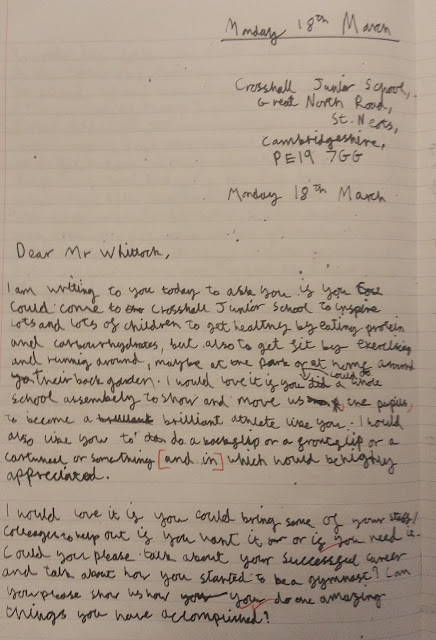 Monday 18th March
Crosshall Junior School,
Great North Road,
St. Neots,
Cambridgeshire,
PE19 7GG
Monday 18th March
Dear Mr Whitlock,
I am writing to you today to ask you if you
could come to Crosshall Junior School to inspire
lots and lots of children to get healthy by eating protein
and carbourhydrates, but also to get fit by exercising
and runnig around, maybe at the park or at home around
their back garden. I would love it if you did a whole
school assembaly to show and move us the pupils,
to become a brilliant brilliant athlete like you. I would
also like you to do a backflip or a frontflip or a
cartwheel or something [and in] which would be highly
appreciated.
I would love it if you could bring some of your staff/
colleages to help out if you want it or or if you need it.
Could you please talk about your successful career
and talk about how you started to be a gymnast? Can
you please show us how you you do the amazing
things you have accomplished?